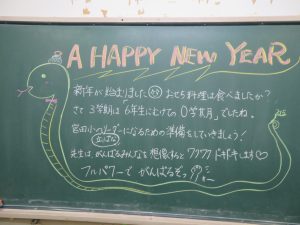 A HAPPY NEW YEAR
新年が始まりました おせち料理は食べましたか？
さて 3学期は「6年生にむけての 0学期」でしたね。
宮田小のリーダーになるための準備をしていきましょう！
先生は、がんばるみんなを想像すると ワクワク ドキドキします♡
フルパワーで がんばるぞっ